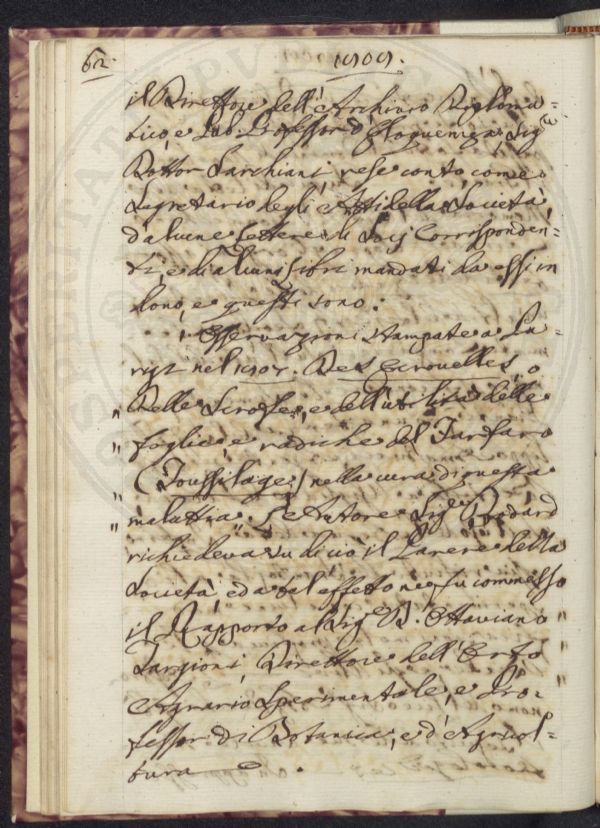 62.
1809.
il Direttore dell'Archivio Diploma=
tico, e Pub. Professor d'Eloquenza, Sig.e
Dottor Sarchiani rese conto come
Segretario degli Atti della Società,
d'alcune lettere di Socj Corrisponden=
ti, e di alcuni libri mandati da essi in
dono, e questi sono.
Osservazioni stampate a Pa=
rigi nel 1807. Des Ecrouelles, o
„ Delle Scrofe, e dell'utilità delle
„ foglie, e radiche del Farfaro
(Toussilage) nella cura di questa
„ malattia„ L'Autore Sig.e Bodard
richiedeva su di ciò il Parere della
Società ed a tal effetto ne fu commesso
il Rapporto al Sig.e D. Ottaviano
Targioni, Direttore dell'Orto
Agrario Sperimentale, e Pro=
fessor di Botanica, e d'Agricol=
tura